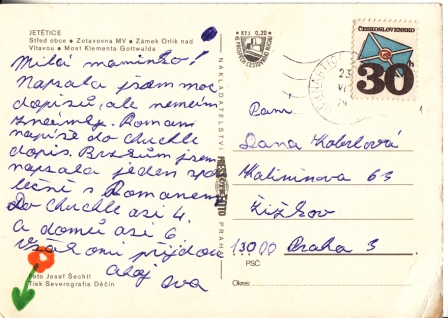 JETĚTICE
Střed obce • Zotavovna MV • Zámek Orlík nad
Vltavou • Most Klementa Gottwalda
Milá maminko!
Napsala jsem moc
dopisů, ale nemám
známky. Romani
napíše do Chuchle
dopis. B jsem
napsala jeden spo
lečně s Romanem
Do Chuchle asi 4.
a domů asi 6
Však oni přijdou
ahoj Eva
Foto Josef Šechtl
Tisk Severografia Děčín
NAKLADATELSTVÍ
PRAHA
Kčs 0,20
ČESKOSLOVENSKO
30h
23
Paní
Dana Koberlová
Kalininova 63
Žižkov
13000 Praha 3
PSČ
Okres: